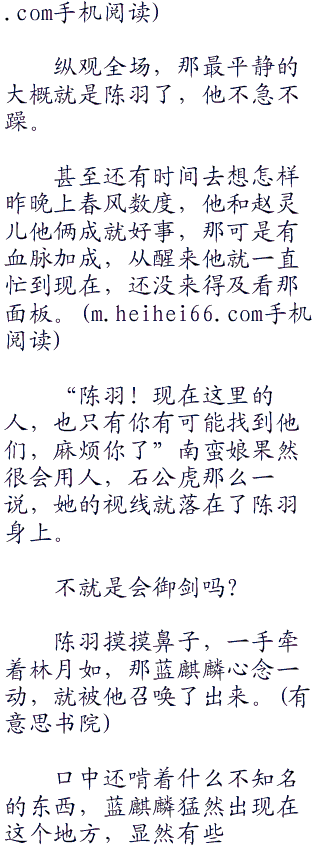 .com手机阅读)
纵观全场，那最平静的
大概就是陈羽了，他不急不
躁。
甚至还有时间去想怎样
昨晚上春风数度，他和赵灵
儿他俩成就好事，那可是有
血脉加成，从醒来他就一直
忙到现在，还没来得及看那
面板。(m.heihei66.com手机
阅读)
“陈羽！现在这里的
人，也只有你有可能找到他
们，麻烦你了”南蛮娘果然
很会用人，石公虎那么一
说，她的视线就落在了陈羽
身上。
不就是会御剑吗？
陈羽摸摸鼻子，一手牵
着林月如，那蓝麒麟心念一
动，就被他召唤了出来。(有
意思书院)
口中还啃着什么不知名
的东西，蓝麒麟猛然出现在
这个地方，显然有些